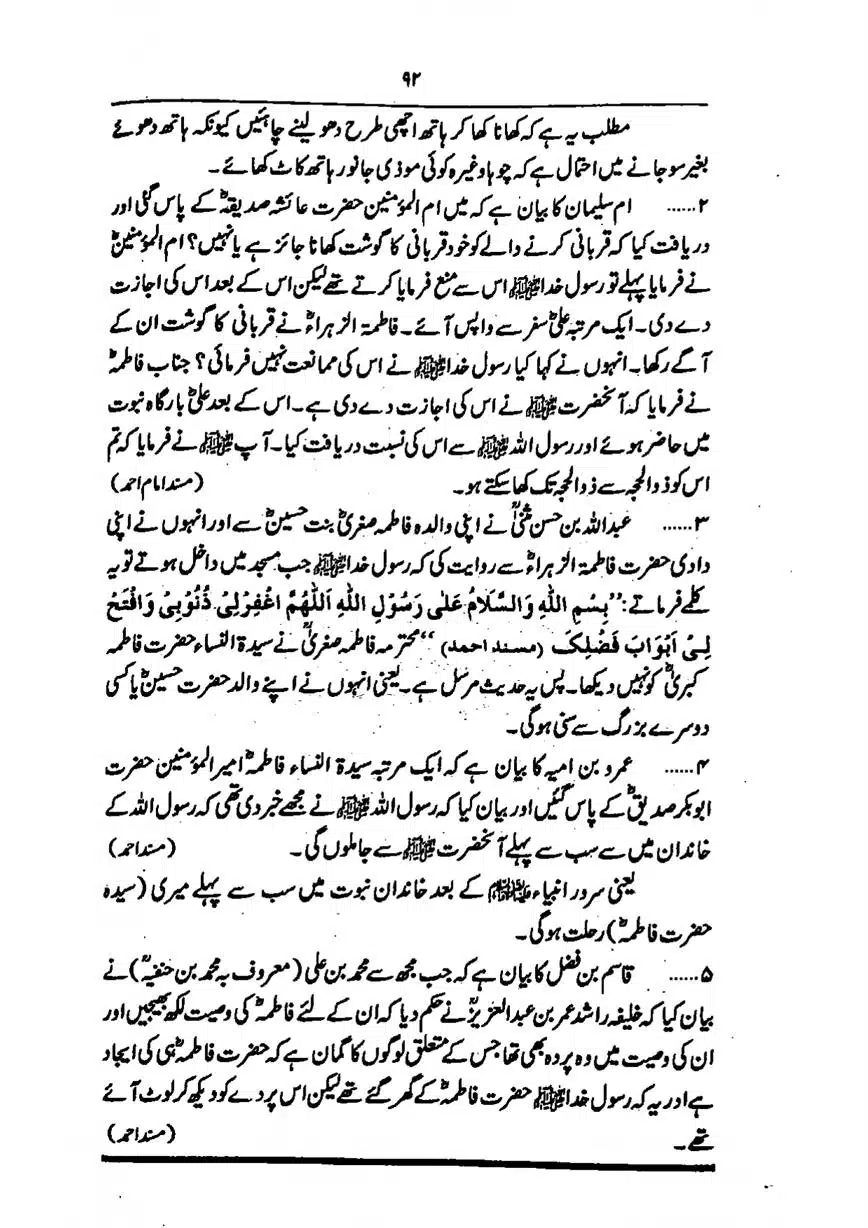 ۹۲
مطلب یہ ہے کہ کھانا کھا کر ہاتھ اچھی طرح دھو لینے چاہئیں کیونکہ ہاتھ دھوئے
بغیر سو جانے میں احتمال ہے کہ چوہا وغیرہ کوئی موذی جانور ہاتھ کاٹ کھائے۔
۲...... ام سلیمان کا بیان ہے کہ میں ام المؤمنین حضرت عائشہ صدیقہؓ کے پاس گئی اور
دریافت کیا کہ قربانی کرنے والے کو خود قربانی کا گوشت کھانا جائز ہے یا نہیں؟ ام المؤمنینؓ
نے فرمایا پہلے تو رسول خدا ﷺ اس سے منع فرمایا کرتے تھے لیکن اس کے بعد اس کی اجازت
دے دی۔ ایک مرتبہ علیؓ سفر سے واپس آئے۔ فاطمۃ الزہراءؓ نے قربانی کا گوشت ان کے
آگے رکھا۔ انہوں نے کہا کیا رسول خدا ﷺ نے اس کی ممانعت نہیں فرمائی؟ جناب فاطمہؓ
نے فرمایا کہ آنحضرت ﷺ نے اس کی اجازت دے دی ہے۔ اس کے بعد علیؓ بارگاہ نبوت
میں حاضر ہوئے اور رسول اللہ ﷺ سے اس کی نسبت دریافت کیا۔ آپ ﷺ نے فرمایا کہ تم
اس کو ذوالحجہ سے ذوالحجہ تک کھا سکتے ہو۔ (مسند امام احمد)
۳...... عبداللہ بن حسن مثنیٰؒ نے اپنی والدہ فاطمہ صغریٰؓ بنت حسینؓ سے اور انہوں نے اپنی
دادی حضرت فاطمۃ الزہراءؓ سے روایت کی کہ رسول خدا ﷺ جب مسجد میں داخل ہوتے تو یہ
کلمے فرماتے: ”بِسْمِ اللّٰهِ وَالسَّلَامُ عَلٰی رَسُوْلِ اللّٰهِ اَللّٰهُمَّ اغْفِرْلِیْ ذُنُوْبِیْ وَافْتَحْ
لِیْ اَبْوَابَ فَضْلِکَ (مسند احمد)“ محترمہ فاطمہ صغریٰؒ نے سیدۃ النساء حضرت فاطمہ
کبریٰؓ کو نہیں دیکھا۔ پس یہ حدیث مرسل ہے۔ یعنی انہوں نے اپنے والد حضرت حسینؓ یا کسی
دوسرے بزرگ سے سنی ہوگی۔
۴...... عمرو بن امیہ کا بیان ہے کہ ایک مرتبہ سیدۃ النساء فاطمہؓ امیر المؤمنین حضرت
ابوبکر صدیقؓ کے پاس گئیں اور بیان کیا کہ رسول اللہ ﷺ نے مجھے خبر دی تھی کہ رسول اللہ کے
خاندان میں سے سب سے پہلے آنحضرت ﷺ سے جا ملوں گی۔ (مسند احمد)
یعنی سرور انبیاء ﷺ کے بعد خاندان نبوت میں سب سے پہلے میری (سیدہ
حضرت فاطمہؓ) رحلت ہوگی۔
۵...... قاسم بن فضل کا بیان ہے کہ جب مجھ سے محمد بن علی (معروف بہ محمد بن حنفیہؒ) نے
بیان کیا کہ خلیفہ راشد عمر بن عبدالعزیزؒ نے حکم دیا کہ ان کے لئے فاطمہؓ کی وصیت لکھ بھیجیں اور
ان کی وصیت میں وہ پردہ بھی تھا جس کے متعلق لوگوں کا گمان ہے کہ حضرت فاطمہؓ ہی کی ایجاد
ہے اور یہ کہ رسول خدا ﷺ حضرت فاطمہؓ کے گھر گئے تھے لیکن اس پردے کو دیکھ کر لوٹ آئے
تھے۔ (مسند احمد)